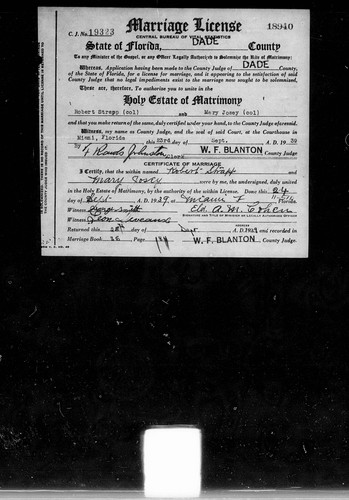 Marriage License
18940
C. J. No. 19323
CENTRAL BUREAU OF VITAL STATISTICS
State of Florida, DADE County
To any Minister of the Gospel, or any Officer Legally Authorized to Solemnize the Rite of Matrimony:
Whereas, Application having been made to the County Judge of DADE County,
of the State of Florida, for a license for marriage, and it appearing to the satisfaction of said
County Judge that no legal impediments exist to the marriage now sought to be solemnized,
These are, therefore, To authorize you to unite in the
Holy Estate of Matrimony
Robert Strapp (col) and Mary Josey (col)
and that you make return of the same, duly certified under your hand, to the County Judge
Witness, my name as County Judge, and the seal of said Court, at the Courthouse in
Miami, Florida this 23rd day of Sept. A. D. 19 39
By Johnston Clerk W. F. BLANTON County Judge
CERTIFICATE OF MARRIAGE
I Certify, that the within named Robert Strapp and
Mary Josey were by me, the undersigned, duly united
in the Holy Estate of Matrimony, by the authority of the within License. Done this 24
day of Sept. A. D. 1939, at Miami F Florida
Witness George Smith Eld. A. M. Cohen
SIGNATURE AND TITLE OF MINISTER OR LAWFULLY AUTHORIZED OFFICER
Witness
Returned this 28th day of Sept A. D. 1939, and recorded in
Marriage Book 26, Page W. F. BLANTON County Judge.